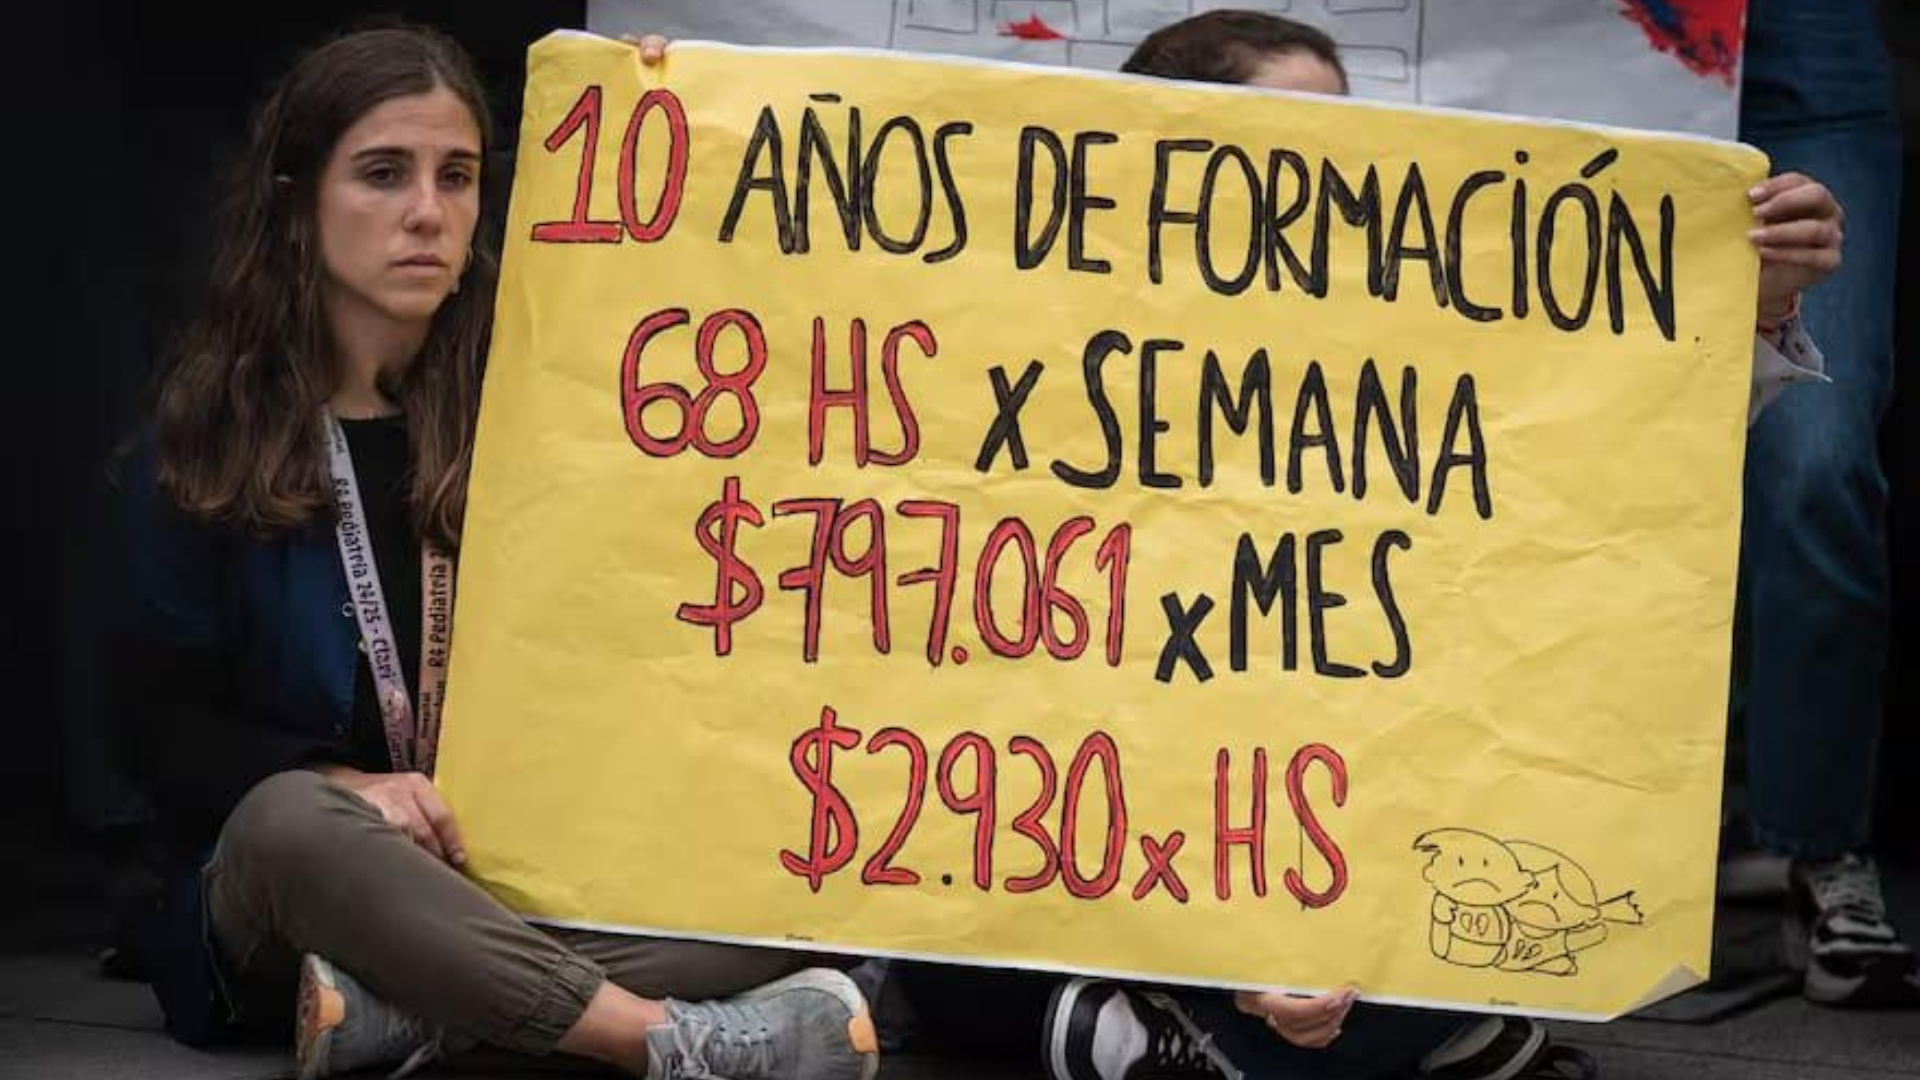 10 AÑOS DE FORMACIÓN
68 HS x SEMANA
$797.061 x MES
$2.930 x HS
R4 Pediatría 24/25 - Clari
R4 Pediatría
Hospital